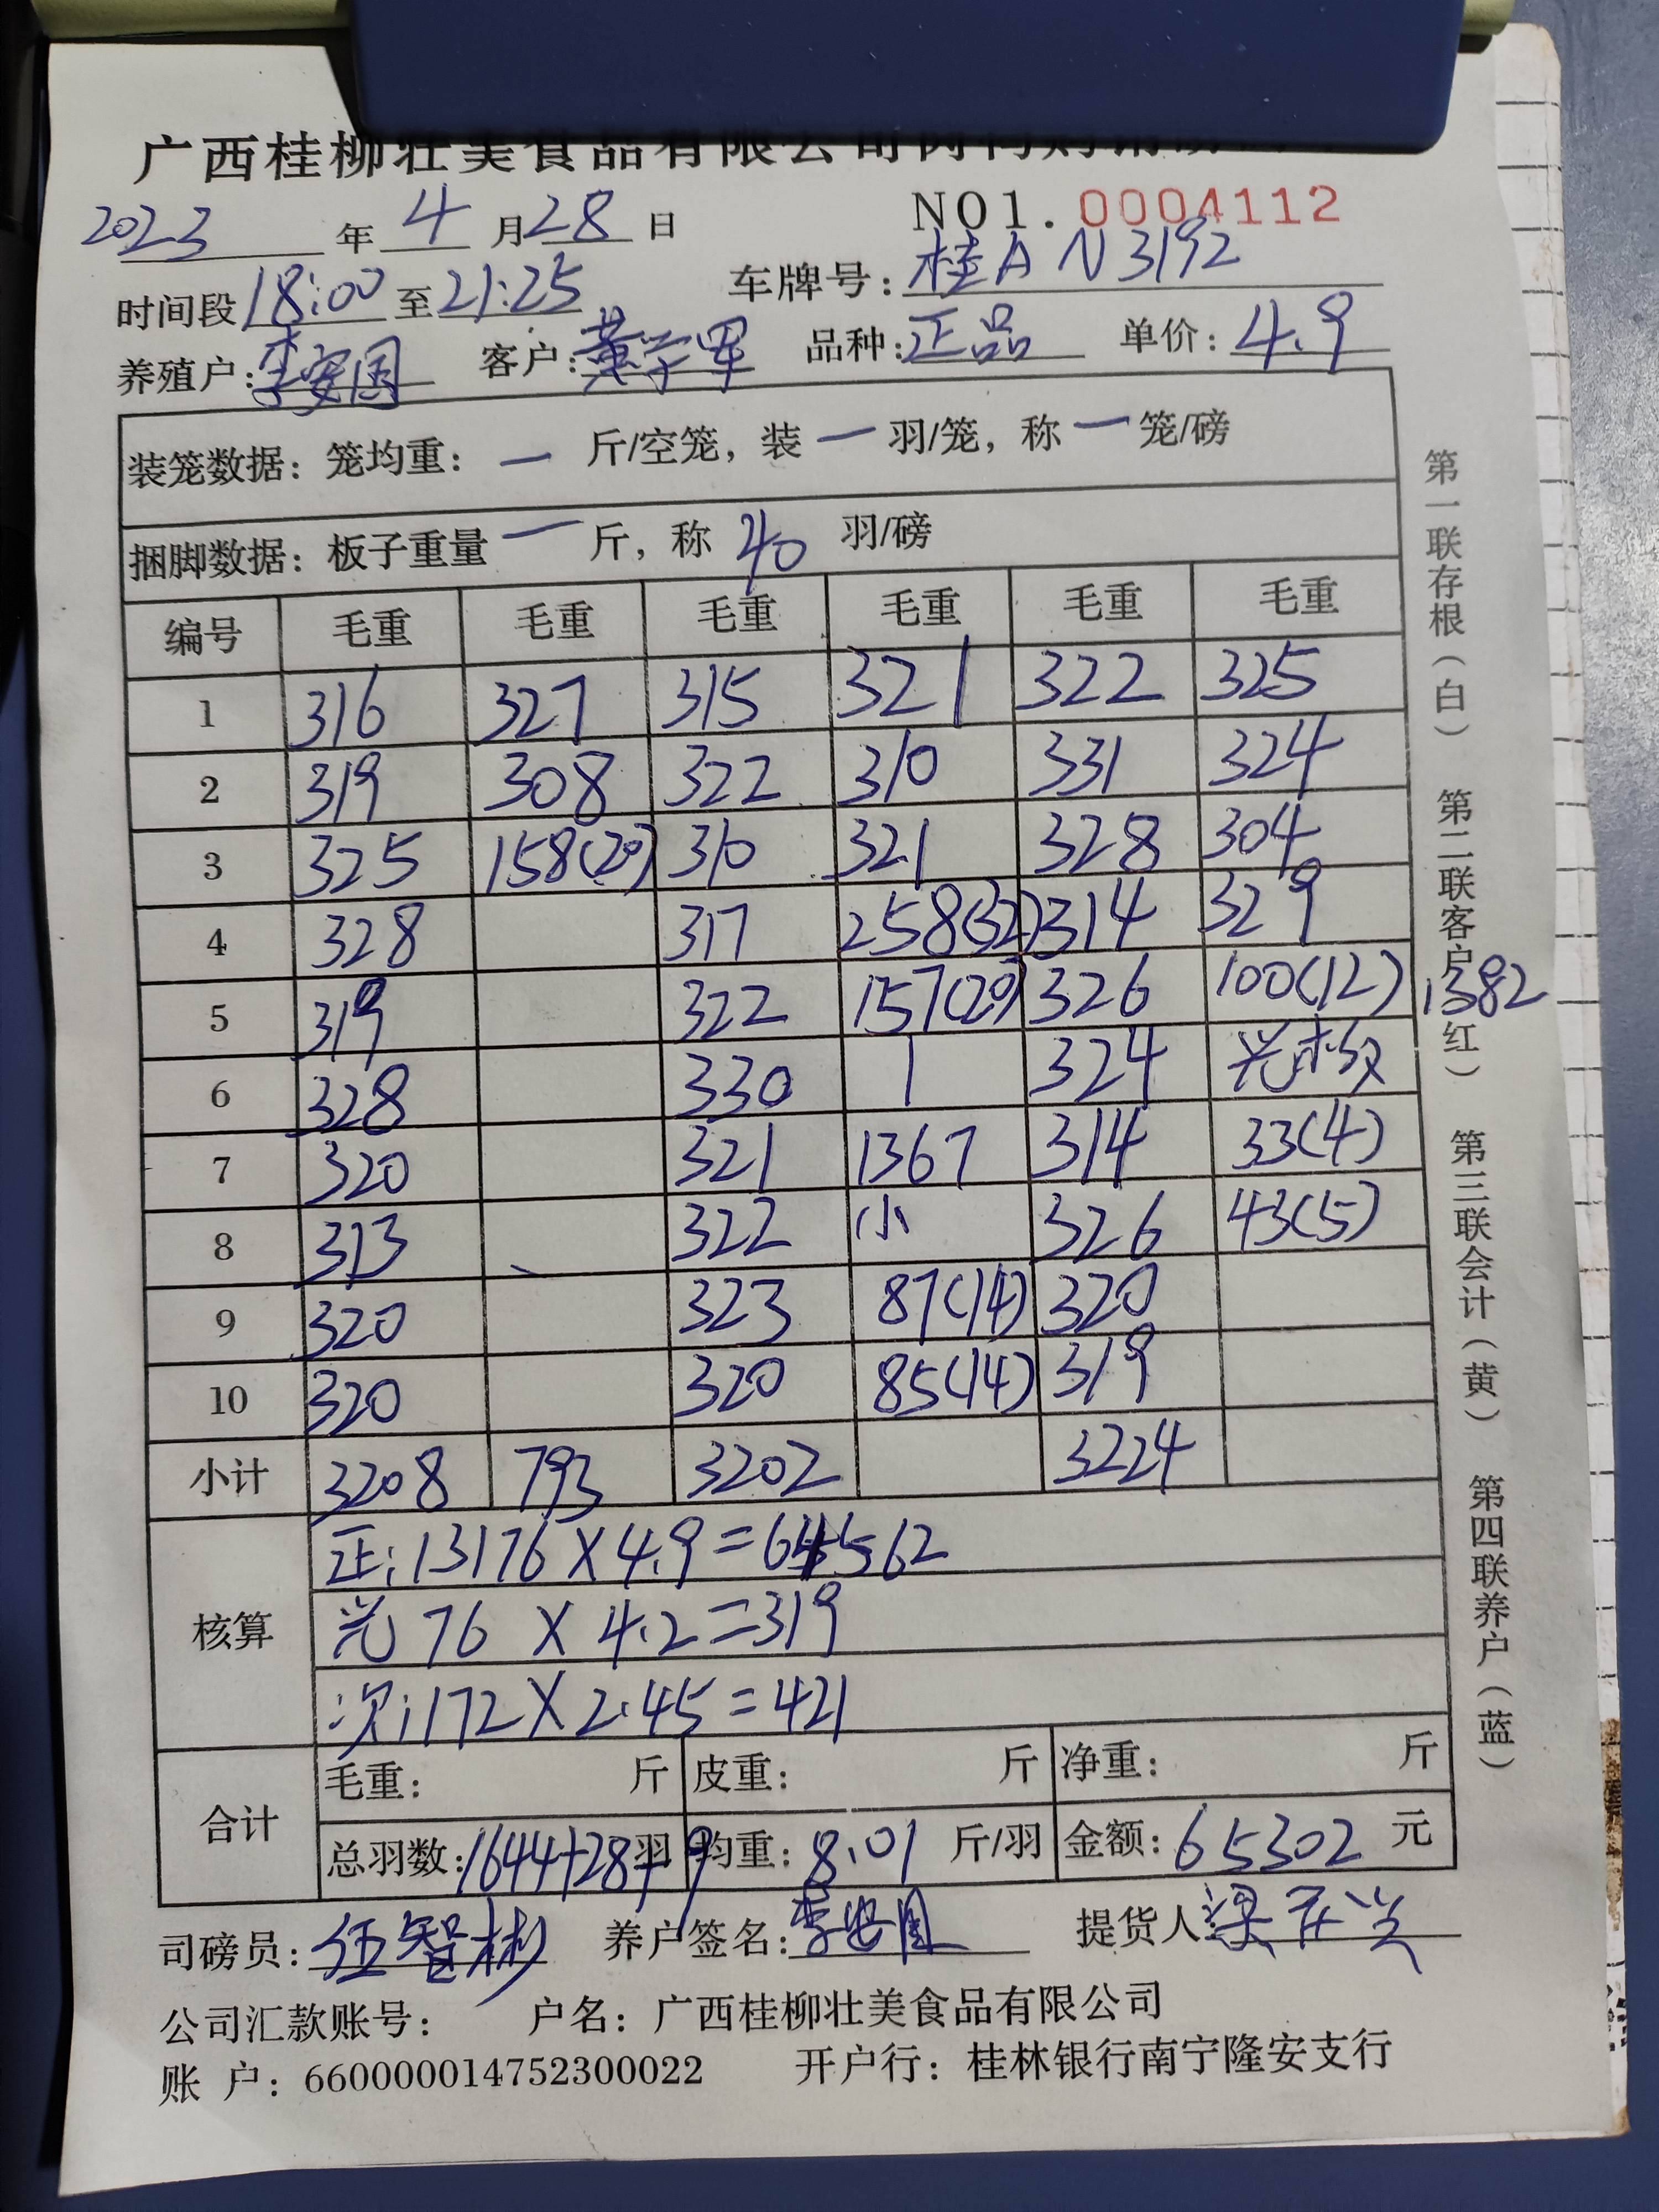 广西桂柳壮美食品有限公司
2023年4月28日 NO1.0004112
时间段18:00至21:25 车牌号:桂A N3192
养殖户:李安国 客户:黄学军 品种:正品 单价:4.9
装笼数据:笼均重:一斤/空笼,装一羽/笼,称一笼/磅
捆脚数据:板子重量一斤,称40羽/磅
编号 毛重 毛重 毛重 毛重 毛重 毛重
1 316 327 315 321 322 325
2 319 308 322 310 331 324
3 325 158(20) 310 321 328 304
4 328 317 258(32) 314 329
5 319 322 157(20) 326 100(12) 1382
6 328 330 1 324 光
7 320 321 1367 314 33(4)
8 313 322 小 326 43(5)
9 320 323 87(14) 320
10 320 320 85(14) 319
小计 3208 793 3202 3224
核算
正:13176×4.9=64562
光 76 × 4.2=319
次:172×2.45=421
合计
毛重: 斤 皮重: 斤 净重: 斤
总羽数:1644+28+9羽 均重:8.01斤/羽 金额:65302元
司磅员:伍智彬 养户签名:李安国 提货人:
公司汇款账号: 户名:广西桂柳壮美食品有限公司
账 户:660000014752300022 开户行:桂林银行南宁隆安支行
第一联存根(白) 第二联客户(红) 第三联会计(黄) 第四联养户(蓝)